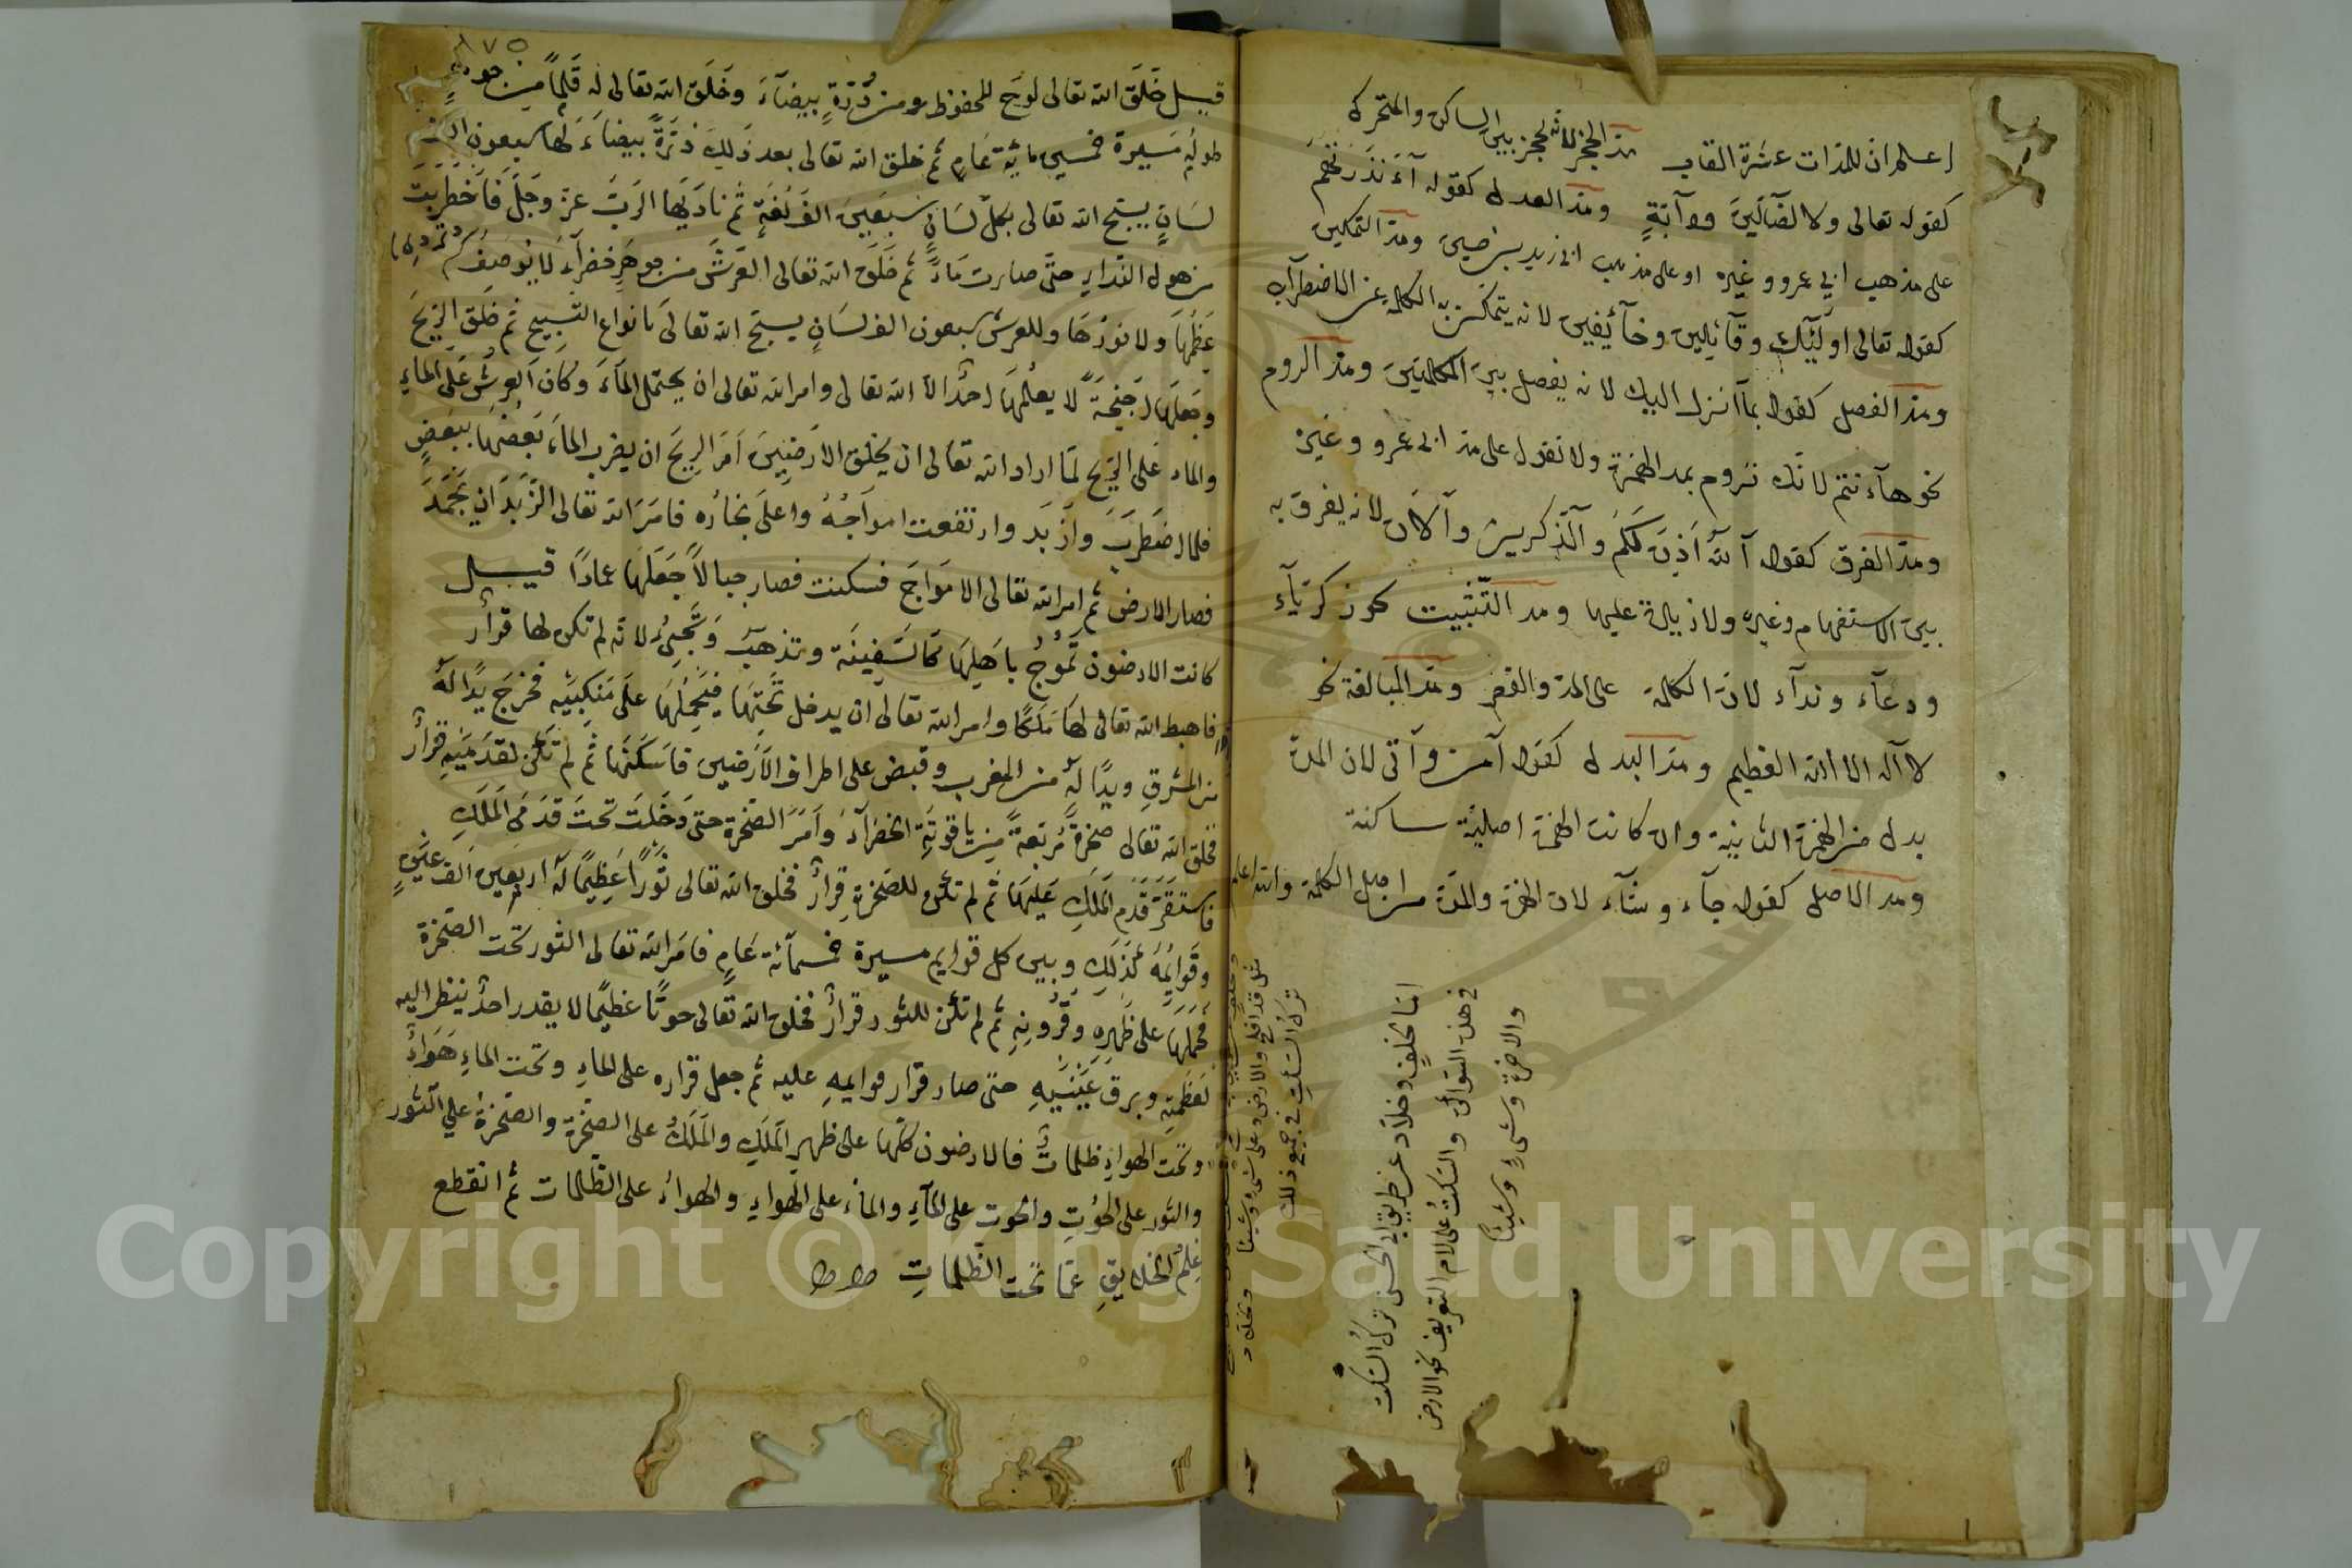 اعلم ان للمدات عشرة القاب مد الحجز لانه يحجز بين الساكن والمتحرك
كقوله تعالى ولا الضآلين ودآبة ومد العدل كقوله آءنذرتهم
على مذهب ابي عمرو وغيره او على مذهب ومد التمكين
كقوله تعالى اولٓئك وقآئلين وخآئفين لانه يتمكن به الكلمة عن الاضطراب
ومد الفصل كقوله بمآ انزل اليك لانه يفصل بين الكلمتين ومد الروم
نحو هآءنتم لانك تروم بمد الهمزة ولا تقول على مد ابى عمرو وغيره
ومد الفرق كقوله آلله اذن لكم وآلذكرين وآلان لانه يفرق به
بين الاستفهام وغيره ولا زيادة عليها ومد التثبيت كزكريآء
ودعآء وندآء لان الكلمة على المد والقصر ومد المبالغة نحو
لا آله الا الله العظيم ومد البدل كقوله آمن وآتى لان المدة
بدل من الهمزة الثانية وان كانت الهمزة اصلية ساكنة
ومد الاصل كقوله جآء وشآء لان الهمزة والمدة من اصل الكلمة والله اعلم
اما خلف وخلاد عن طريق ابى الحسن ترك السكت
فى هذه السواكن والسكت على لام التعريف نحو الارض
والاخرة وشئ وشيئا
قد افلح والارض وعلى شئ وشيئا
ترك السكت فى جميع ذلك
١٧٥
قيل خَلَقَ الله تعالى لوح المحفوظ من دُرَّةٍ بيضآءَ وخَلَق الله تعالى له قَلَمًا من جوهر
طوله مَسيرة خمسمائة عَامٍ ثم خلق الله تعالى بعد ذَلِكَ دُرَّةً بيضاءَ لها سبعون الف
لسَانٍ يسبح الله تعالى بكل لسَانٍ سَبعين الف لُغَةٍ ثم نادَيها الرَبّ عزّ وجَلّ فَاضْطَرَبَتْ
من هول النداءِ حتّى صارت مَاءً ثم خَلَقَ الله تعالى العَرَشَ من جوهرٍ خضرآءَ لا يُوصَفُ
عَظَمُها ولا نورُها وللعرش سبعون الف لسَانٍ يسبح الله تعالى بانواع التسبيح ثم خَلَقَ الرِيحَ
وجَعَلَها اجنِحَةً لا يعلمُها احدٌ الا الله تعالى وامر الله تعالى ان يحتمل المآءَ وكان العرش عَلَى المآءِ
والماء على الريح لما اراد الله تعالى ان يخلق الارَضِينَ اَمَرَ الريحَ ان يضرب الماءَ بَعْضُها ببَعضٍ
فلما اضطَرَبَ وازْبَد وارتفعت امواجُهُ واعلَى بخاره فامَرَ الله تعالى الزَبَدَ ان يَجْمَدَ
فصار الارض ثم امر الله تعالى الامَواجَ فسكنت فصار جبالاً جَعَلَها عمادًا قيل
كانت الارضون تَمُوجُ باَهلِهَا كالسَفِينَة وتذهب وَتَجِئُ لانه لم تكن لها قرارٌ
فاهبط الله تعالى لها مَلَكًا وامر الله تعالى ان يدخل تَحتَها فيَحْمِلُها عَلَى مَنكِبَيْه فخرَجَ يدًا لَهُ
من المشرق ويدًا له من المغرب وقبض على اطراف الاَرَضينَ فاسكَنَها ثم لم تكن لقدَمَيْهِ قرارٌ
فخلق الله تعالى صخرةً مُربَعةً من ياقوتَةِ الخضرآءِ وامَرَ الصخرة حتى دَخَلَتْ تحتَ قدَمَى المَلَكِ
فاستقَرَّ قَدَم المَلَكِ عَلَيها ثم لم تكن للصخرةِ قرارٌ فخلق الله تعالى ثَورًا عَظِيمًا له اربَعين الف عينٍ
وقوَائِمُهُ كذَلِكِ وبين كل قوايم مسيرة خمسمآئة عَامٍ فامَرَ الله تعالى الثور تحت الصَخرة
فَحَمَلَها على ظَهرِهِ وقُرونِهِ ثم لم تكن للثور قرارٌ فخلق الله تعالى حوتًا عَظيمًا لا يقدر احدٌ ينظر اليه
لعَظَمتِهِ وبرق عَيْنَيهِ حتى صار قرار قوايمهِ عليه ثم جعل قراره على الماءِ وتحت الماءِ هَوَاءٌ
وتحت الهواءِ ظلماتٌ فالارضون كلّها على ظهرِ المَلَكِ والمَلَكُ على الصَخرة والصَخرة على الثور
والثور على الحُوتِ والحوت على المآءِ والماءُ على الهواءِ والهواءُ على الظُلمات ثم انقطع
عِلمُ الخلايقِ عمّا تحت الظلماتِ
Copyright © King Saud University